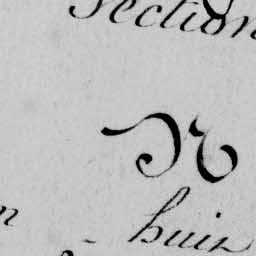 Section
N
n - huin